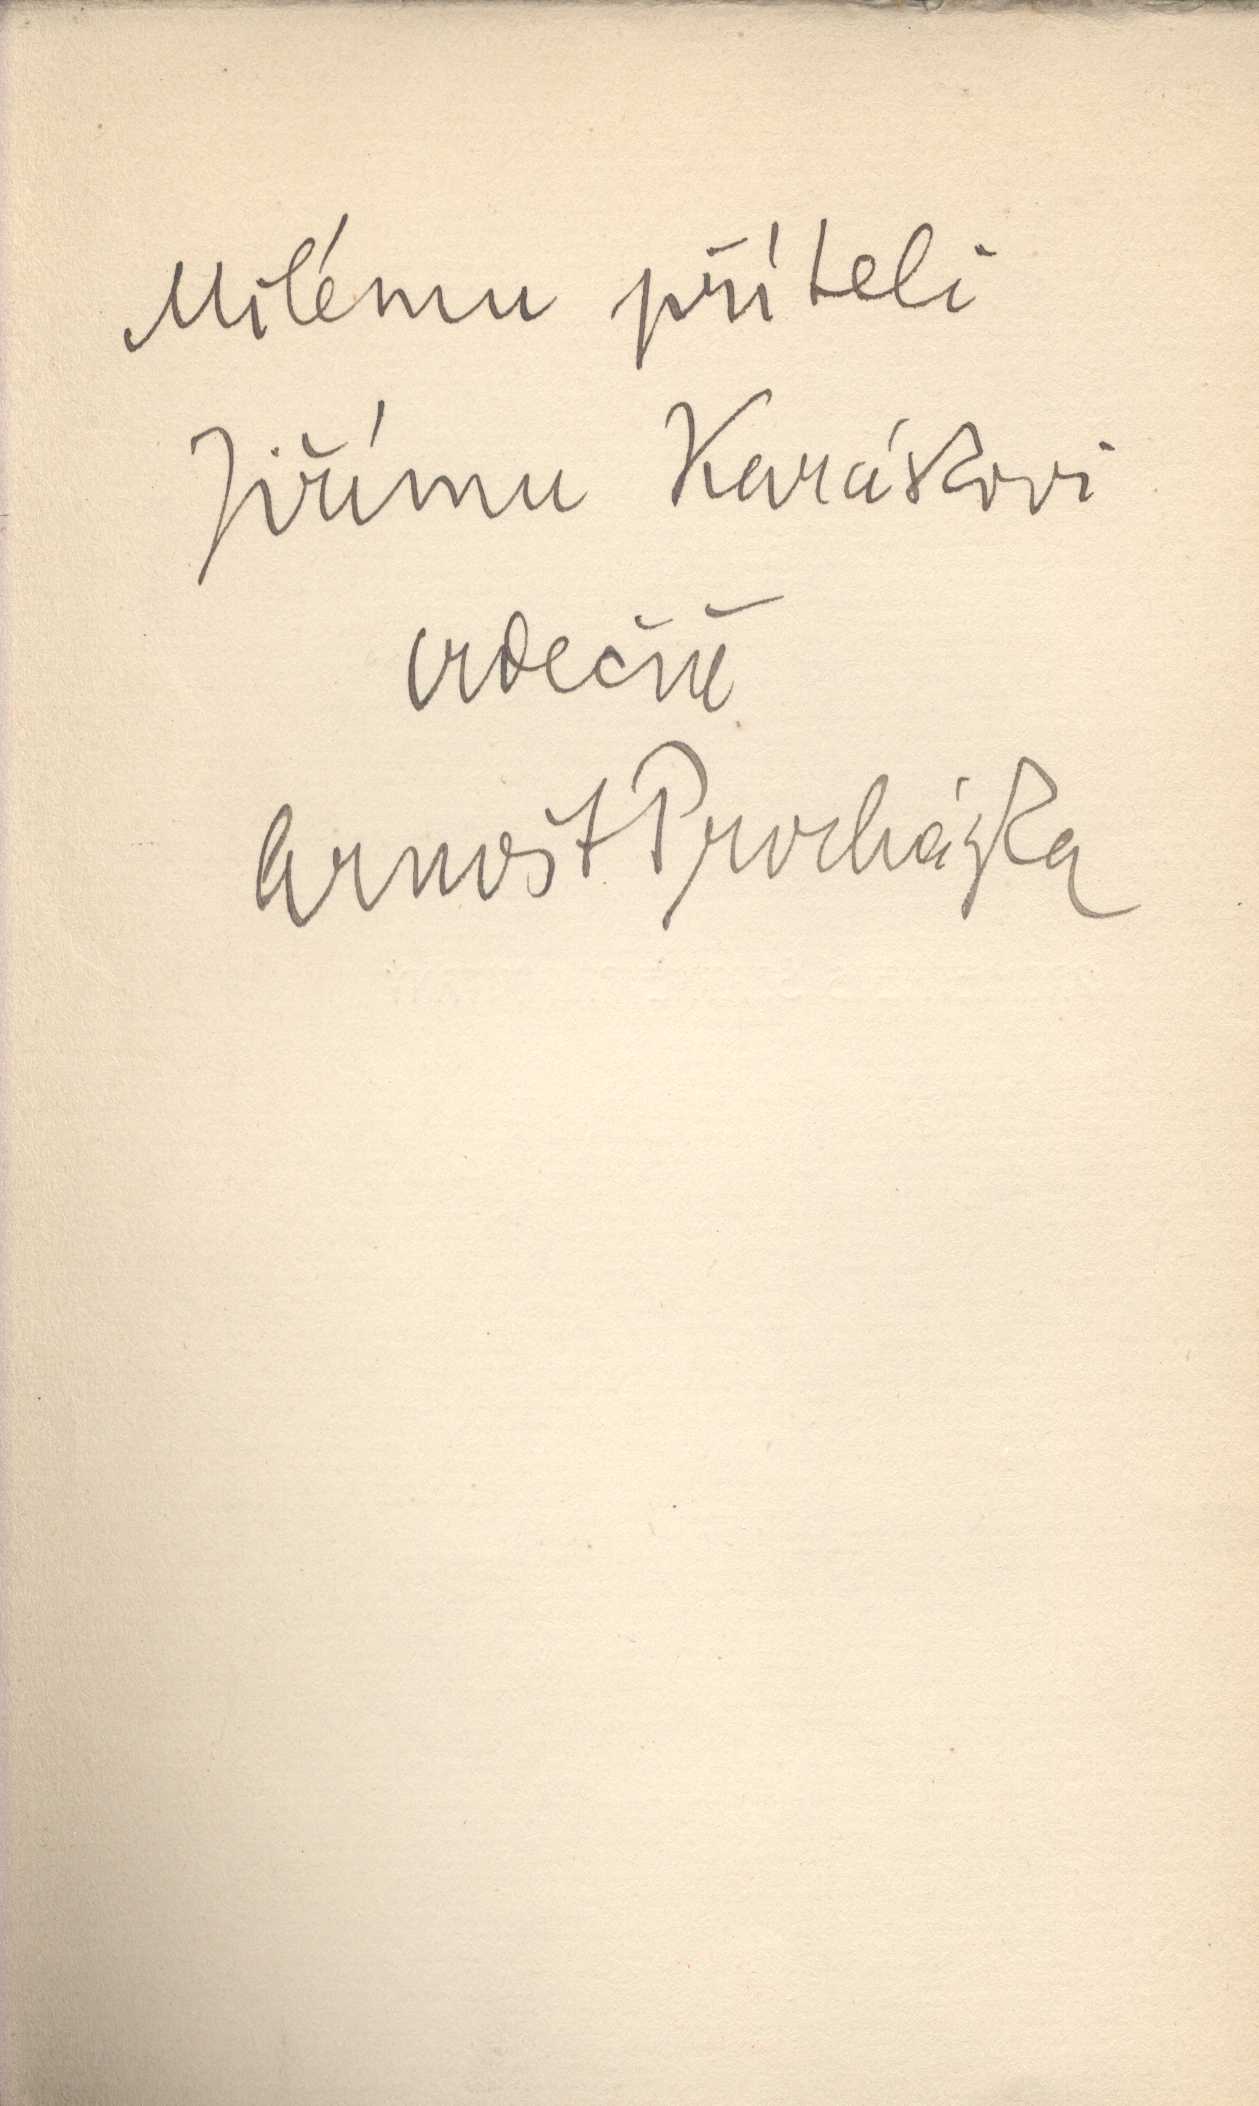 Milému příteli
Jiřímu Karáskovi
srdečně
Arnošt Procházka